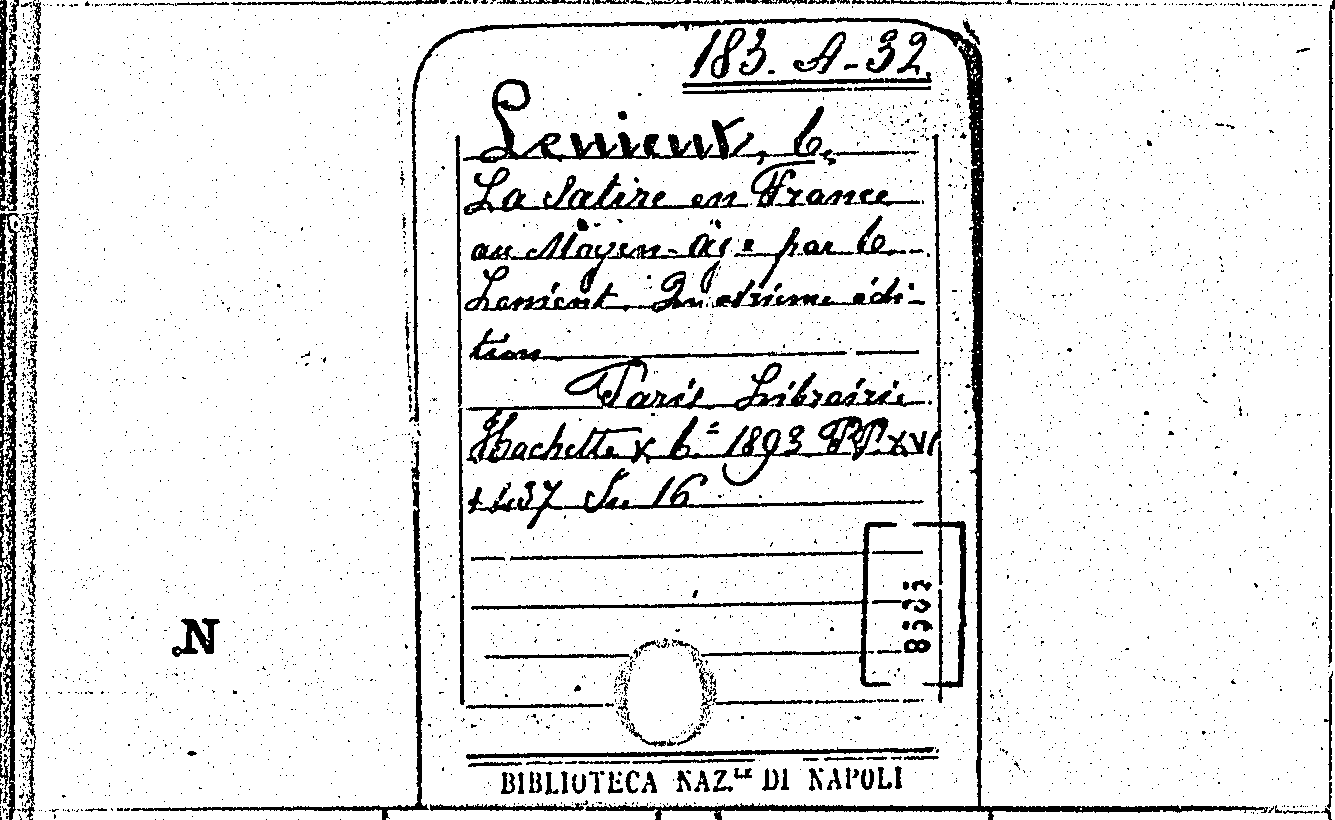 183. A-32.
Lenient, C.
La Satire en France
au Moyen-âge par C.
Lenient. Quatrième édi-
tion
Paris Librairie
Hachette & C.ie 1893 PP. XVI
+ 437 In 16
N
BIBLIOTECA NAZ.LE DI NAPOLI